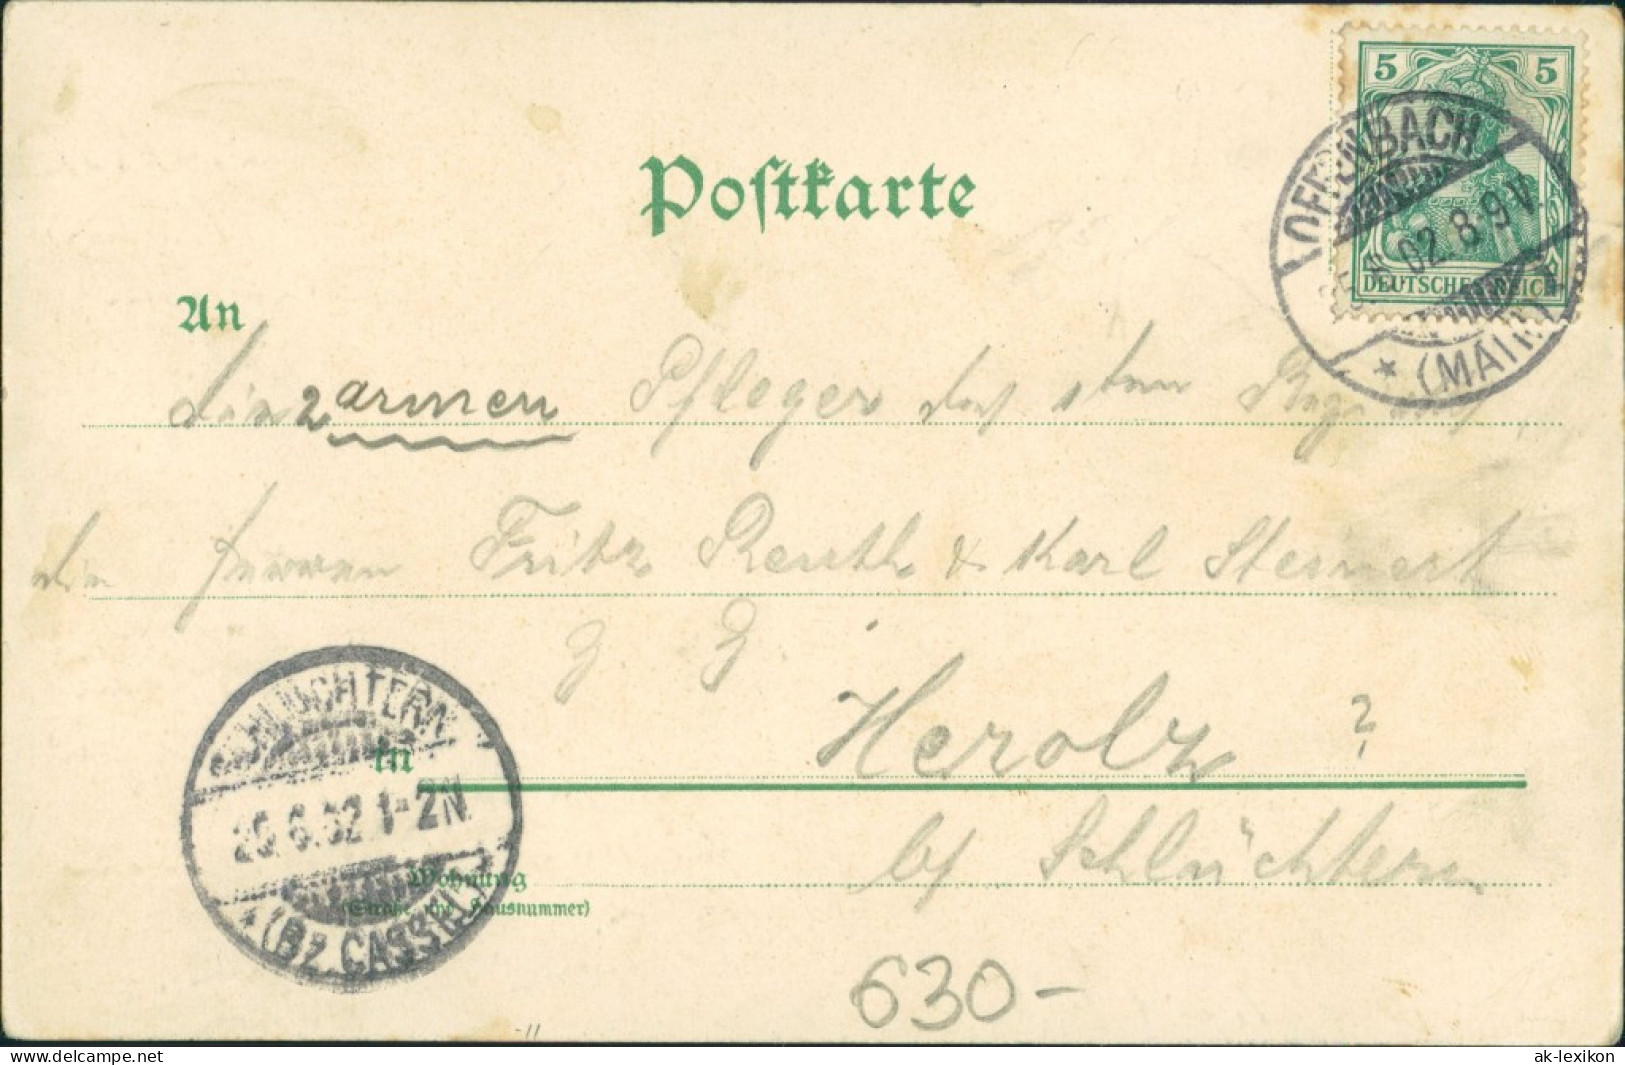 5 5
DEUTSCHES REICH
OFFENBACH
02 8-9V.
* (MAIN)
Postkarte
An
die 2 armen Pfleger des
die Herren Fritz Reuth & Karl Steinert
z. Z.
in Herolz ?
b/ Schlüchtern
SCHLÜCHTERN
6.02 1-2N.
* (Bz. CASSEL)
Wohnung
(Straße und Hausnummer)
630-
delcampe.net
ak-lexikon